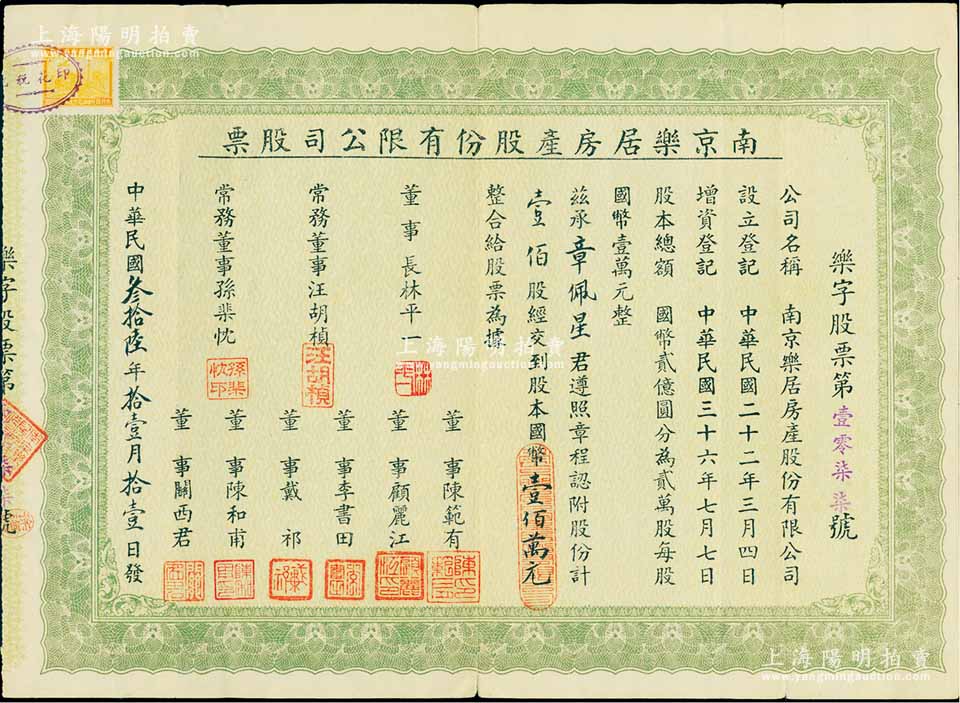 南京樂居房產股份有限公司股票
樂字股票第壹零柒柒號
公司名稱 南京樂居房產股份有限公司
設立登記 中華民國二十二年三月四日
增資登記 中華民國三十六年七月七日
股本總額 國幣貳億圓分為貳萬股每股
國幣壹萬元整
茲承章佩星君遵照章程認附股份計
壹佰股經交到股本國幣壹佰萬元
整合給股票為據
董事長林平一
常務董事汪胡楨
汪胡楨
常務董事孫棐忱
孫棐忱印
董事陳範有
董事顧麗江
董事李書田
董事戴祁
董事陳和甫
董事關西君
中華民國叁拾陸年拾壹月拾壹日發
樂字股票第
柒號
印花稅
上海陽明拍賣
www.yangmingauction.com
上海陽明拍賣
www.yangmingauction.com
上海陽明拍賣
www.yangmingauction.com